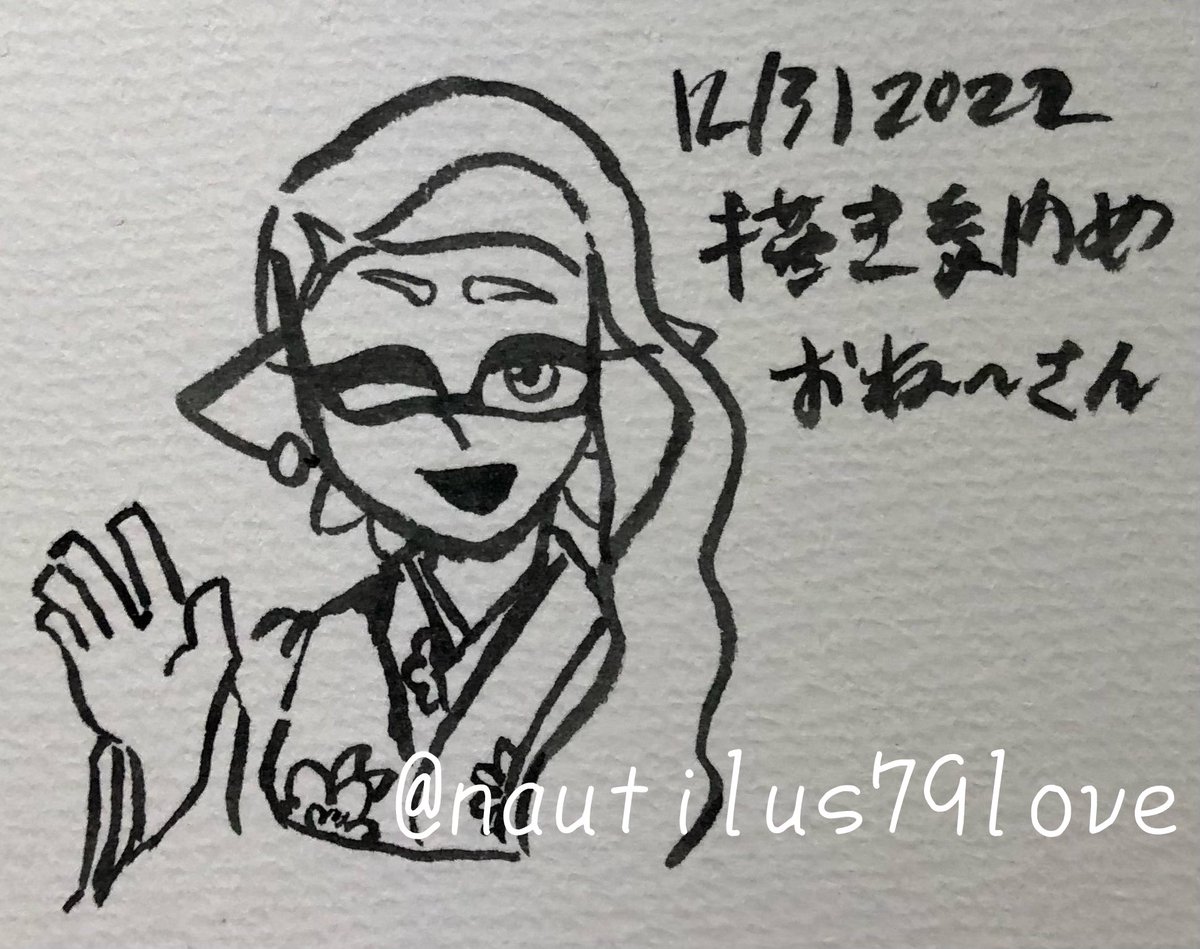 12/31 2022
描き納め
おねーさん
@nautilus79love